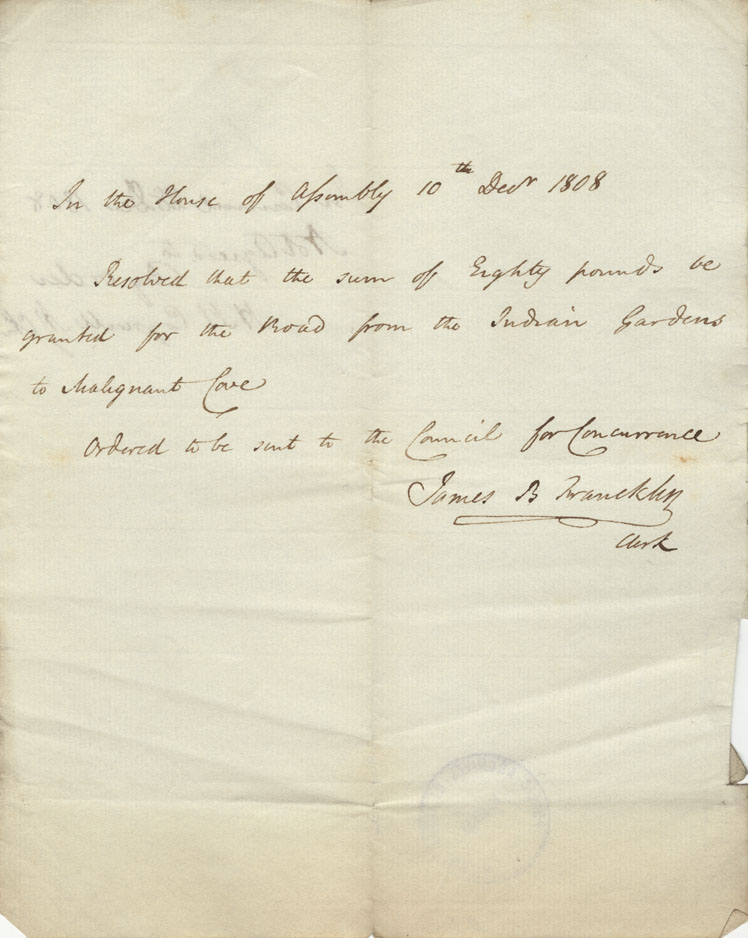 In the House of Assembly 10th Decr 1808
Resolved that the sum of Eighty pounds be
granted for the Road from the Indian Gardens
to Malignant Cove
Ordered to be sent to the Council for Concurrence
James B Francklin
Clerk